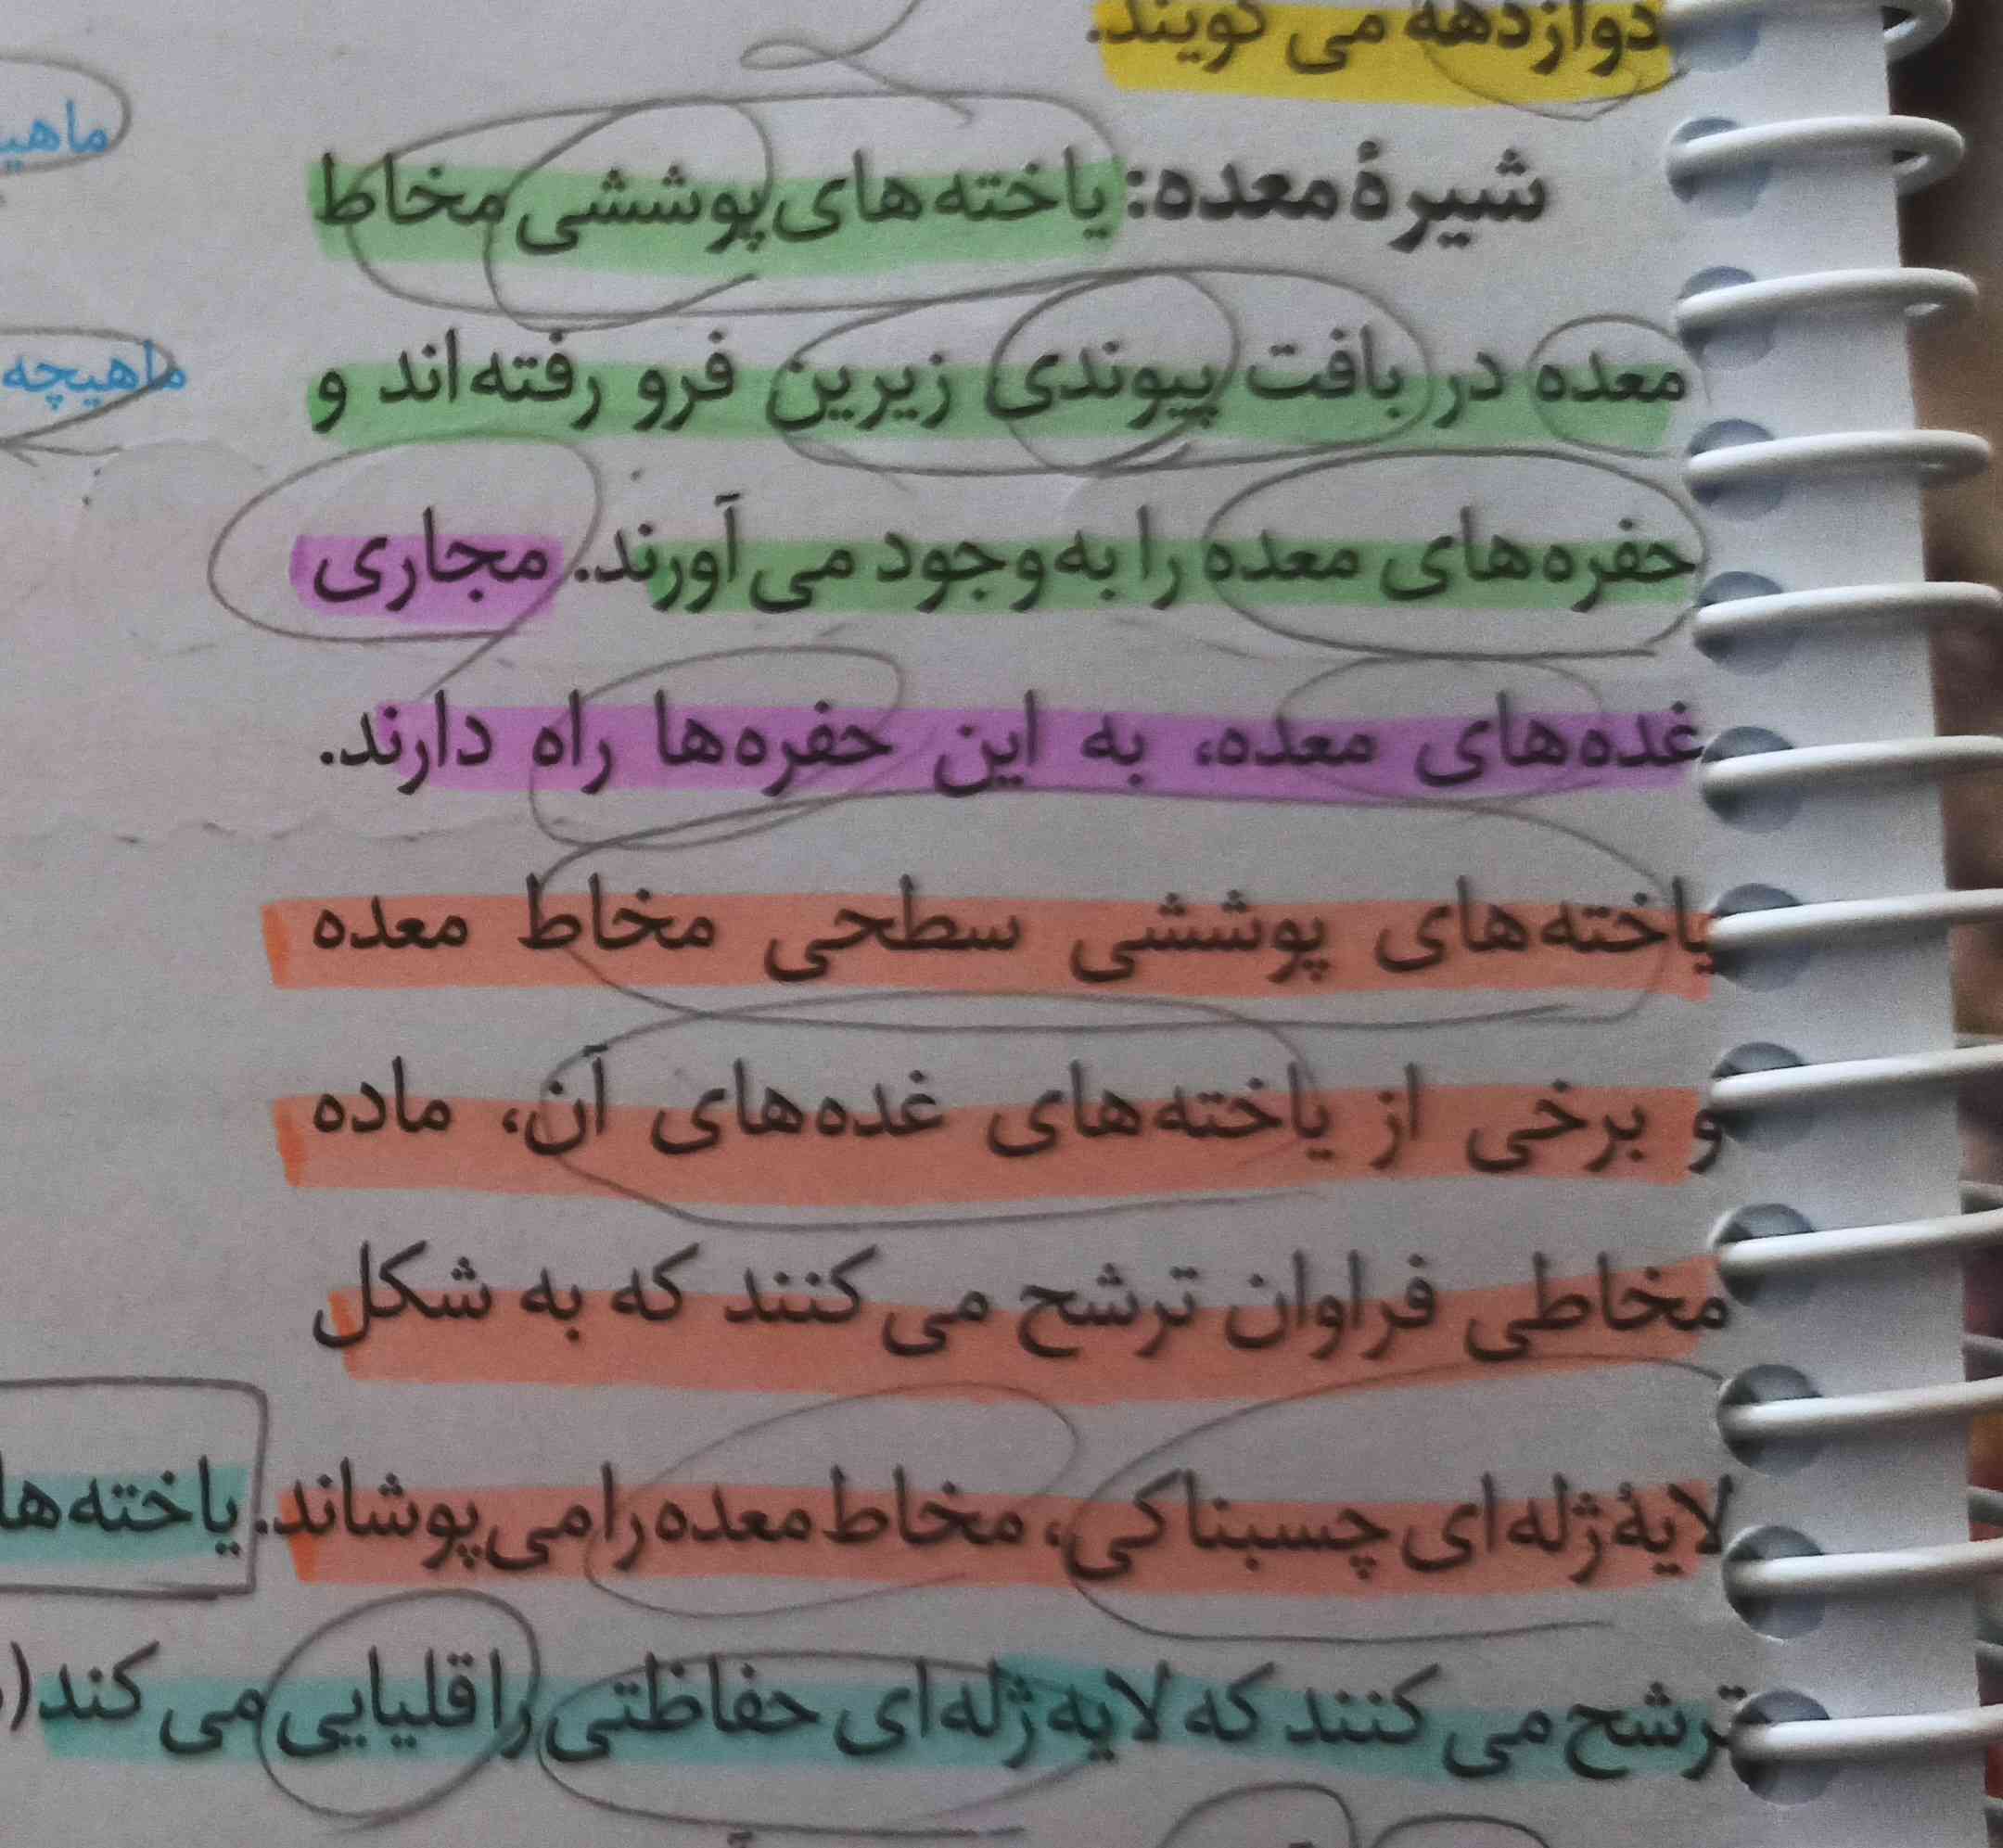 دوازدهه می گویند.
شیرهٔ معده: یاخته‌های پوششی مخاط
معده در بافت پیوندی زیرین فرو رفته‌اند و
حفره‌های معده را به‌وجود می‌آورند. مجاری
غده‌های معده، به این حفره‌ها راه دارند.
یاخته‌های پوششی سطحی مخاط معده
و برخی از یاخته‌های غده‌های آن، ماده
مخاطی فراوان ترشح می‌کنند که به شکل
لایهٔ ژله‌ای چسبناکی، مخاط معده را می‌پوشاند. یاخته‌ها
ترشح می‌کنند که لایه ژله‌ای حفاظتی را قلیایی می‌کند (
ماهیچه